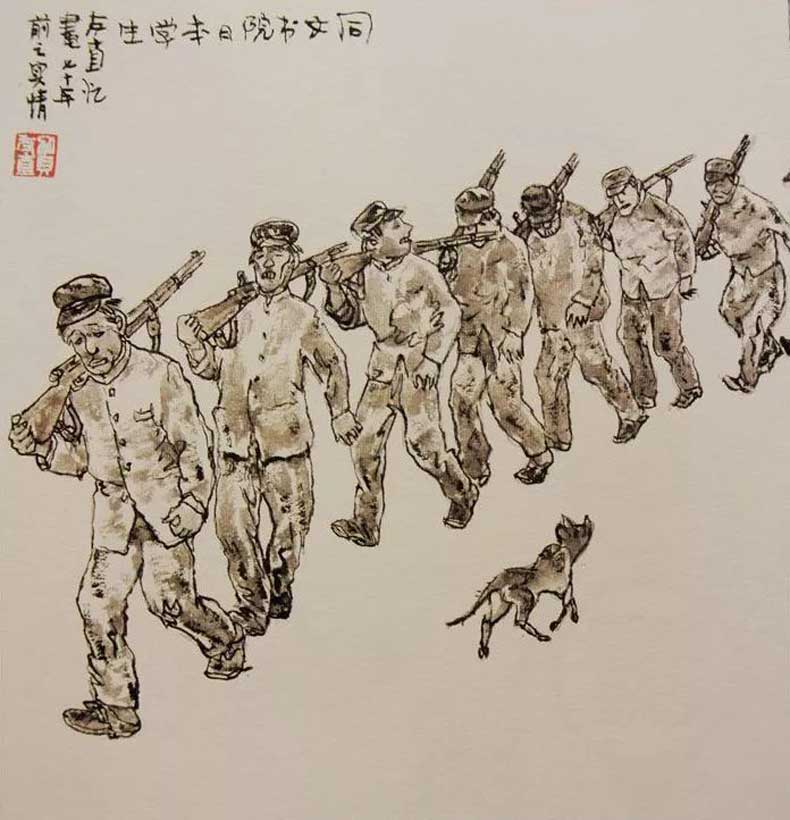 同文书院日本学生
友直忆
畫七十年
前之实情